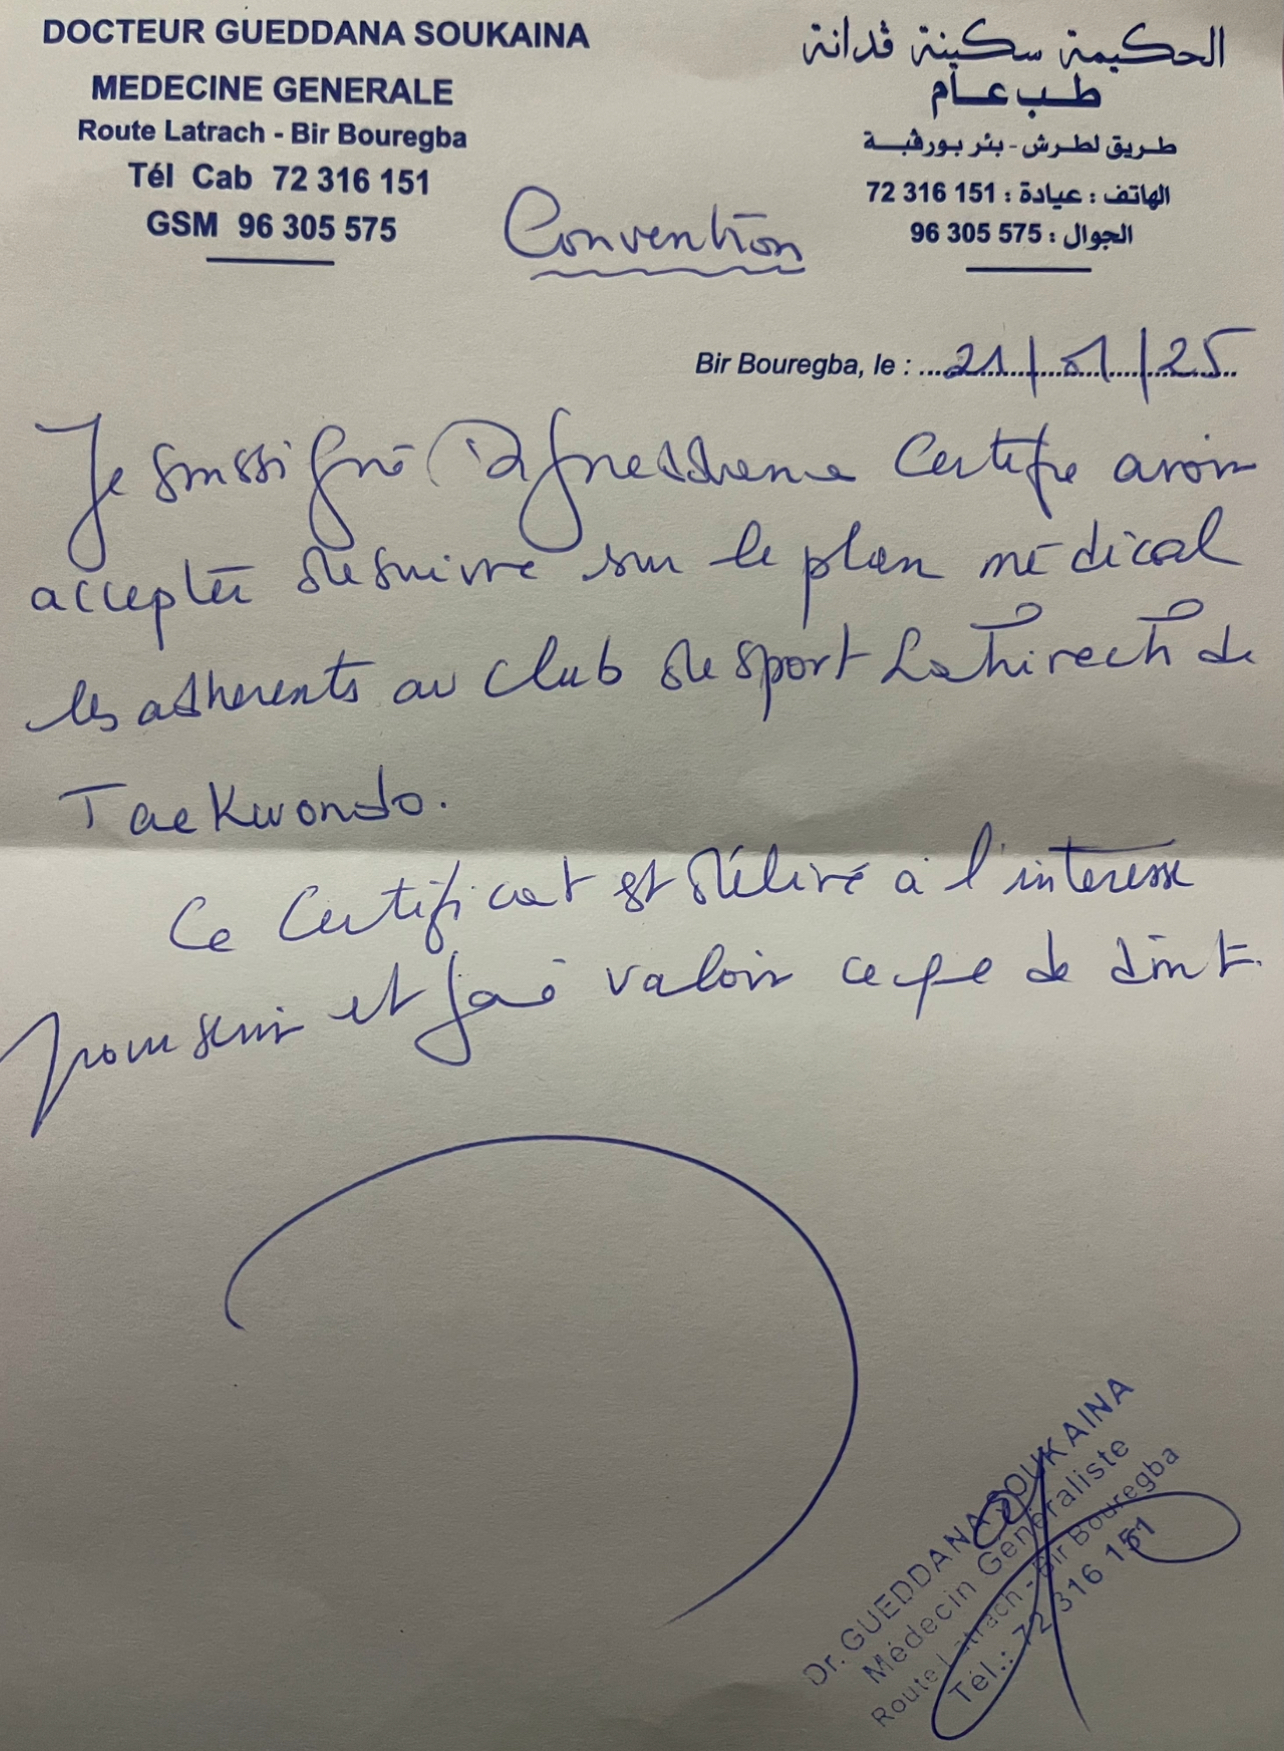 DOCTEUR GUEDDANA SOUKAINA
MEDECINE GENERALE
Route Latrach - Bir Bouregba
Tél Cab 72 316 151
GSM 96 305 575
الحكيمة سكينة ڤدانة
طب عام
طريق لطرش - بئر بورڤبة
الهاتف : عيادة : 151 316 72
الجوال : 575 305 96
Convention
Bir Bouregba, le : 21/01/25
Je soussigné Dr Gueddana Certifie avoir
acceptée de suivre sur le plan médical
les adherents au club de sport Lahirech de
Taekwondo.
Ce Certificat est délivré à l'interessé
pour servir et faire valoir ce que de droit.
Dr. GUEDDANA SOUKAINA
Médecin Généraliste
Route Latrach - Bir Bouregba
Tél.: 72 316 151